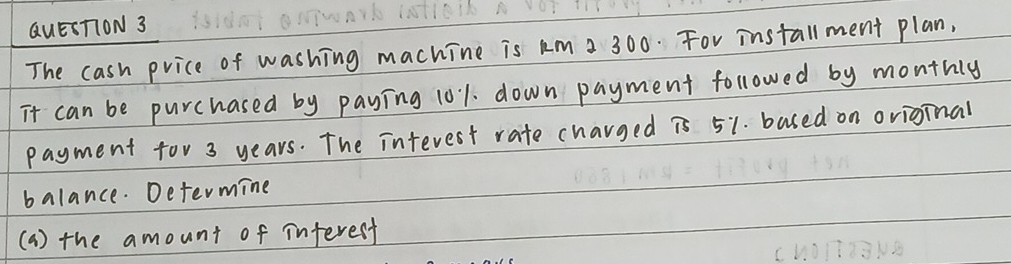 QUESTION 3
The cash price of washing machine is RM 2 300. For installment plan,
it can be purchased by paying 10%. down payment followed by monthly
payment for 3 years. The interest rate charged is 5%. based on original
balance. Determine
(a) the amount of interest